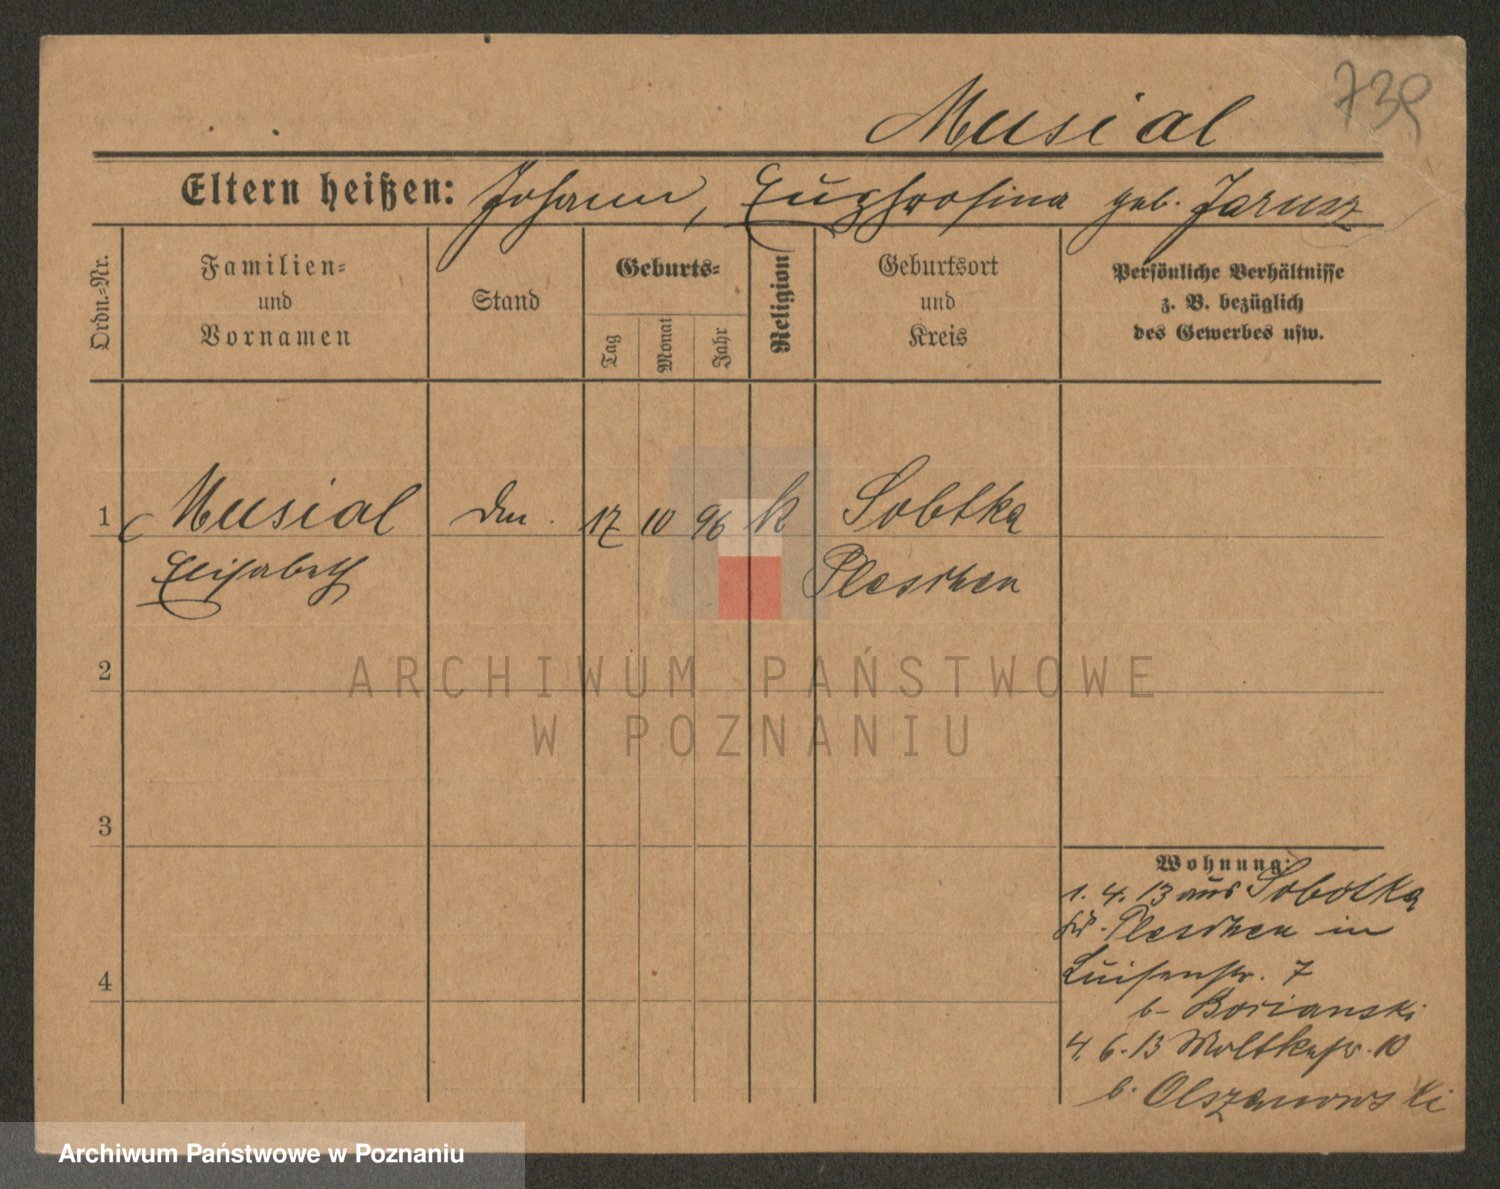 739
Musial
Eltern heißen: Johann, Euphrosina geb. Jarusz
Ordn.-Nr.
Familien-
und
Vornamen
Stand
Geburts-
Tag
Monat
Jahr
Religion
Geburtsort
und
Kreis
Persönliche Verhältnisse
z. B. bezüglich
des Gewerbes usw.
1 Musial 17 10 96 k Sobtka
Elisabeth Pleschen
2
ARCHIWUM PAŃSTWOWE
W POZNANIU
3
Wohnung:
1. 4. 13 aus Sobotka
Pleschen in
4
Luisenstr. 7
b- Borianski
4. 6. 13 Moltkestr. 10
b. Olszanowski
Archiwum Państwowe w Poznaniu